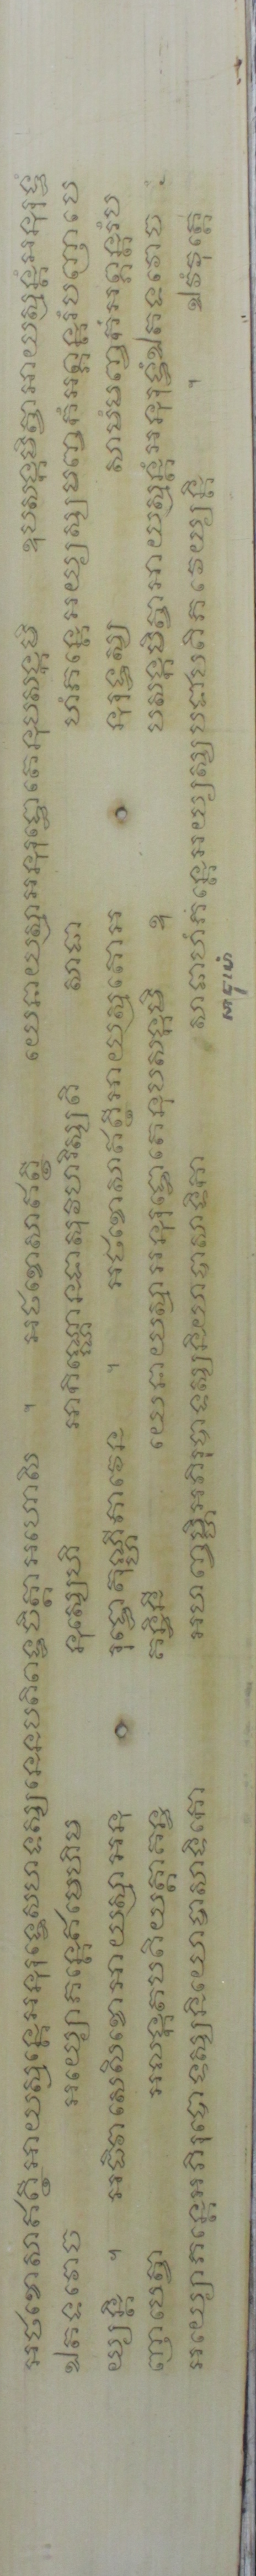 អថខោសាឥត្ថីអាយស្មន្តេអនុរុទ្ធេសហទស្សនេនបតិពទ្ធចិត្តាអហោសិ ។ អថខោសាឥត្ថី យេនាយស្មាអនុរុទ្ធោតេនុបសង្កមិ ឧបសង្កមិត្វាអាយស្មន្តំអនុរុទ្ធំ
ឯតទវោច អយ្យោភន្តេឥមេហិម នុស្សេហិ អាកិណ្ណោនផាសុវិហរិស្សតិ សាធា ហំភន្តេអយ្យស្សមញ្ចកំអព្ភន្តរំបញ្ញាបេ
យ្យន្តិ ។ អធិវាសេសិខោអាយស្មាអនុ រុទ្ធោតុណ្ហីភាវេន ។ អថខោសាឥត្ថីអាយស្មតោអ នុរុទ្ធស្ស សាមំមញ្ចកំអព្ភន្តរំប
ញ្ញាបេត្វា អលង្កតបតិយត្តាគន្ធ គន្ធិនី យេនាយស្មាអនុរុទ្ធោតេនុបសង្កមិ ឧ បសង្កមិត្វាអាយស្មន្តំអនុរុទ្ធំឯតទវោច
អយ្យោភន្តេអភិរូបោទស្សនិយោបាសាទិកោ អហញ្ចម្ហិអភិរូបាទស្សនិយាបាសាទិកា សាធាហំភន្តេអយ្យស្សបជាបតិភវេយ្យន្តិ ។ ឯវំវុត្តេ
សាធុហំ